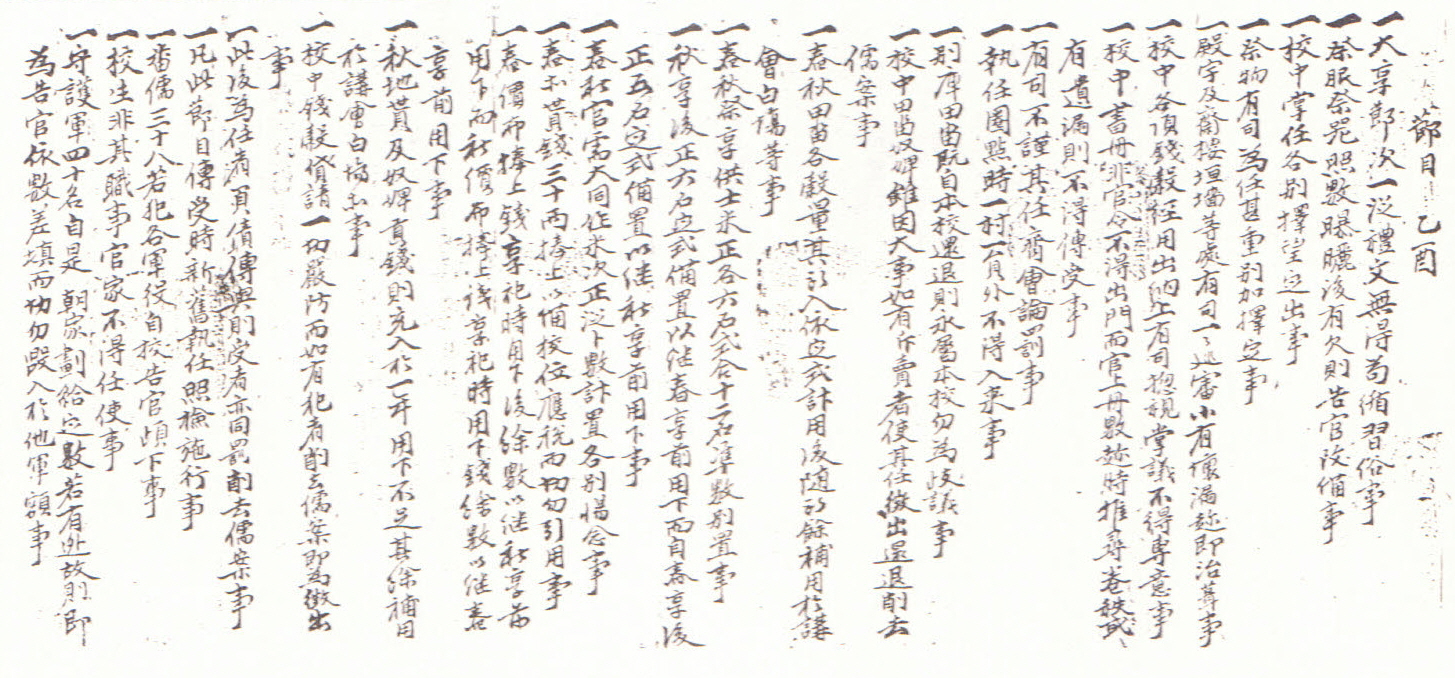 節目 乙酉
一大享節次一從禮文無得苟循習俗事
一祭服祭器照數曝曬後有欠則告官改備事
一校中掌任各別擇望定出事
一祭物有司爲任甚重別加擇定事
一殿宇及齋樓垣墻等處有司一〻巡審小有壞漏趂卽治葺事
一校中各項錢穀經用出納上有司摠視掌議不得專意事
一校中書冊非官令不得出門而官上冊數趂時推尋卷秩或
有遺漏則不得傳受事
一有司不謹其任齋會論罰事
一執任圈點時一村一員外不得入來事
一別庫田畓旣自本校還退則永屬本校勿爲歧議事
一校中田畓奴婢雖因大事如有斥賣者使其任徵出還退削去
儒案事
一春秋田畓各穀量其所入依定式計用後隨所餘補用於講
會白塲等事
一春秋祭享供士米正各六石式合十二石準數別置事
一秋享後正六石定式備置以継春享前用下而自春享後
正五石定式備置以継秋享前用下事
一春秋官需大同作米次正從卜數計置各別惕念事
一春秋貰錢三十兩捧上以備校位應稅而切勿引用事
一春價布捧上錢享祀時用下後餘數以継秋享前
用下而秋價布捧上錢享祀時用下錢餘數以継春
享前用下事
一秋地貰及奴婢貢錢則充入於一年用下不足其餘補用
於講會白塲等事
一校中錢穀貸請一切嚴防而如有犯者削去儒案卽爲徵出
事
一此後爲任者負債傳與則受者亦同罰削去儒案事
一凡此節目傳受時新舊執任照檢施行事
一番儒三十八若犯各軍役自校告官頉下事
一校生非其職事官家不得任使事
一守護軍四十名自是 朝家劃給定數若有逃故則卽
爲告官依數差塡而切勿毀入於他軍額事